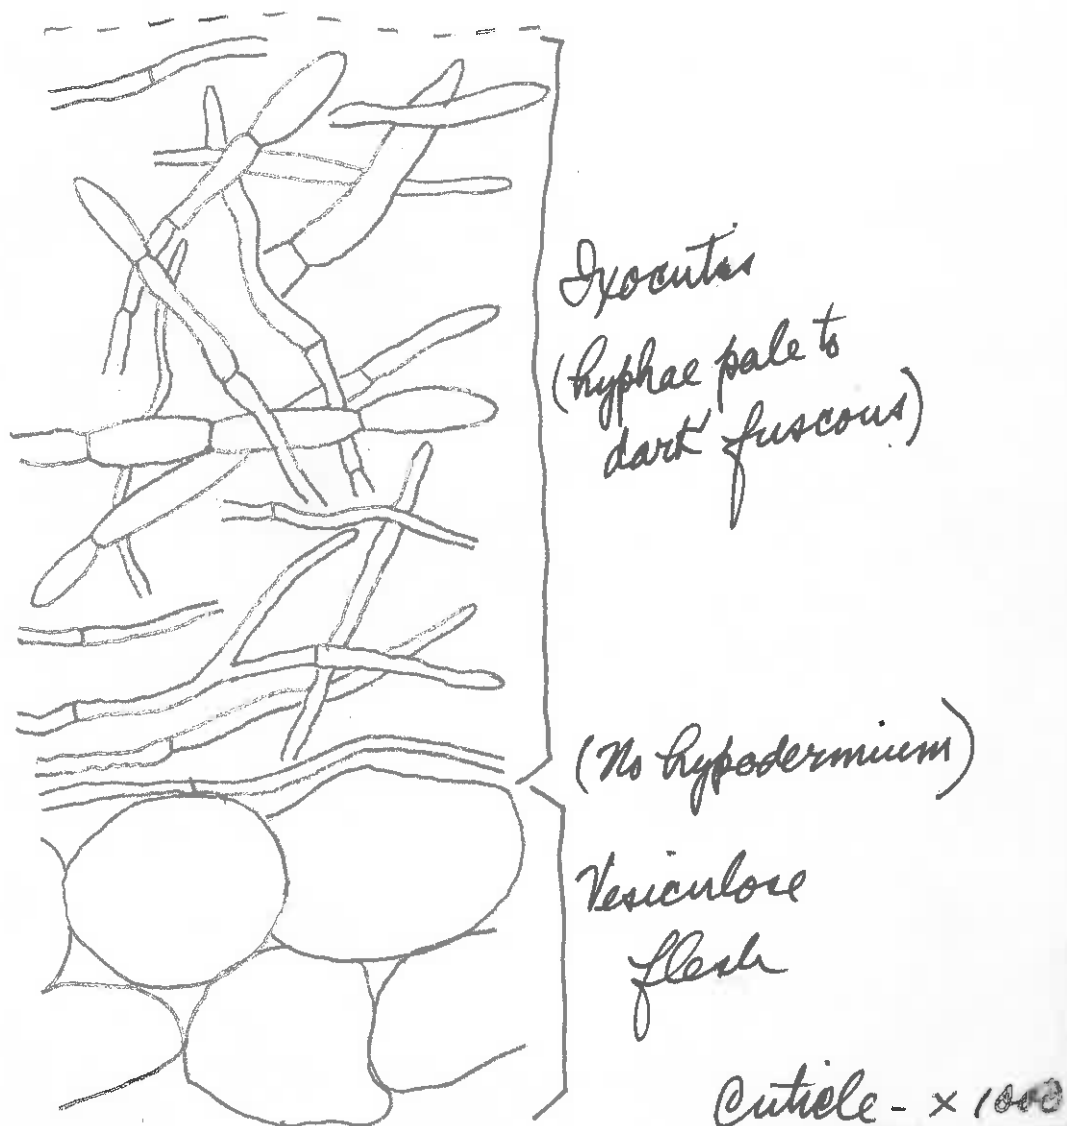 Ixocutis
(hyphae pale to
dark fuscous)
(No hypodermium)
Vesiculose
flesh
Cuticle - × 1000